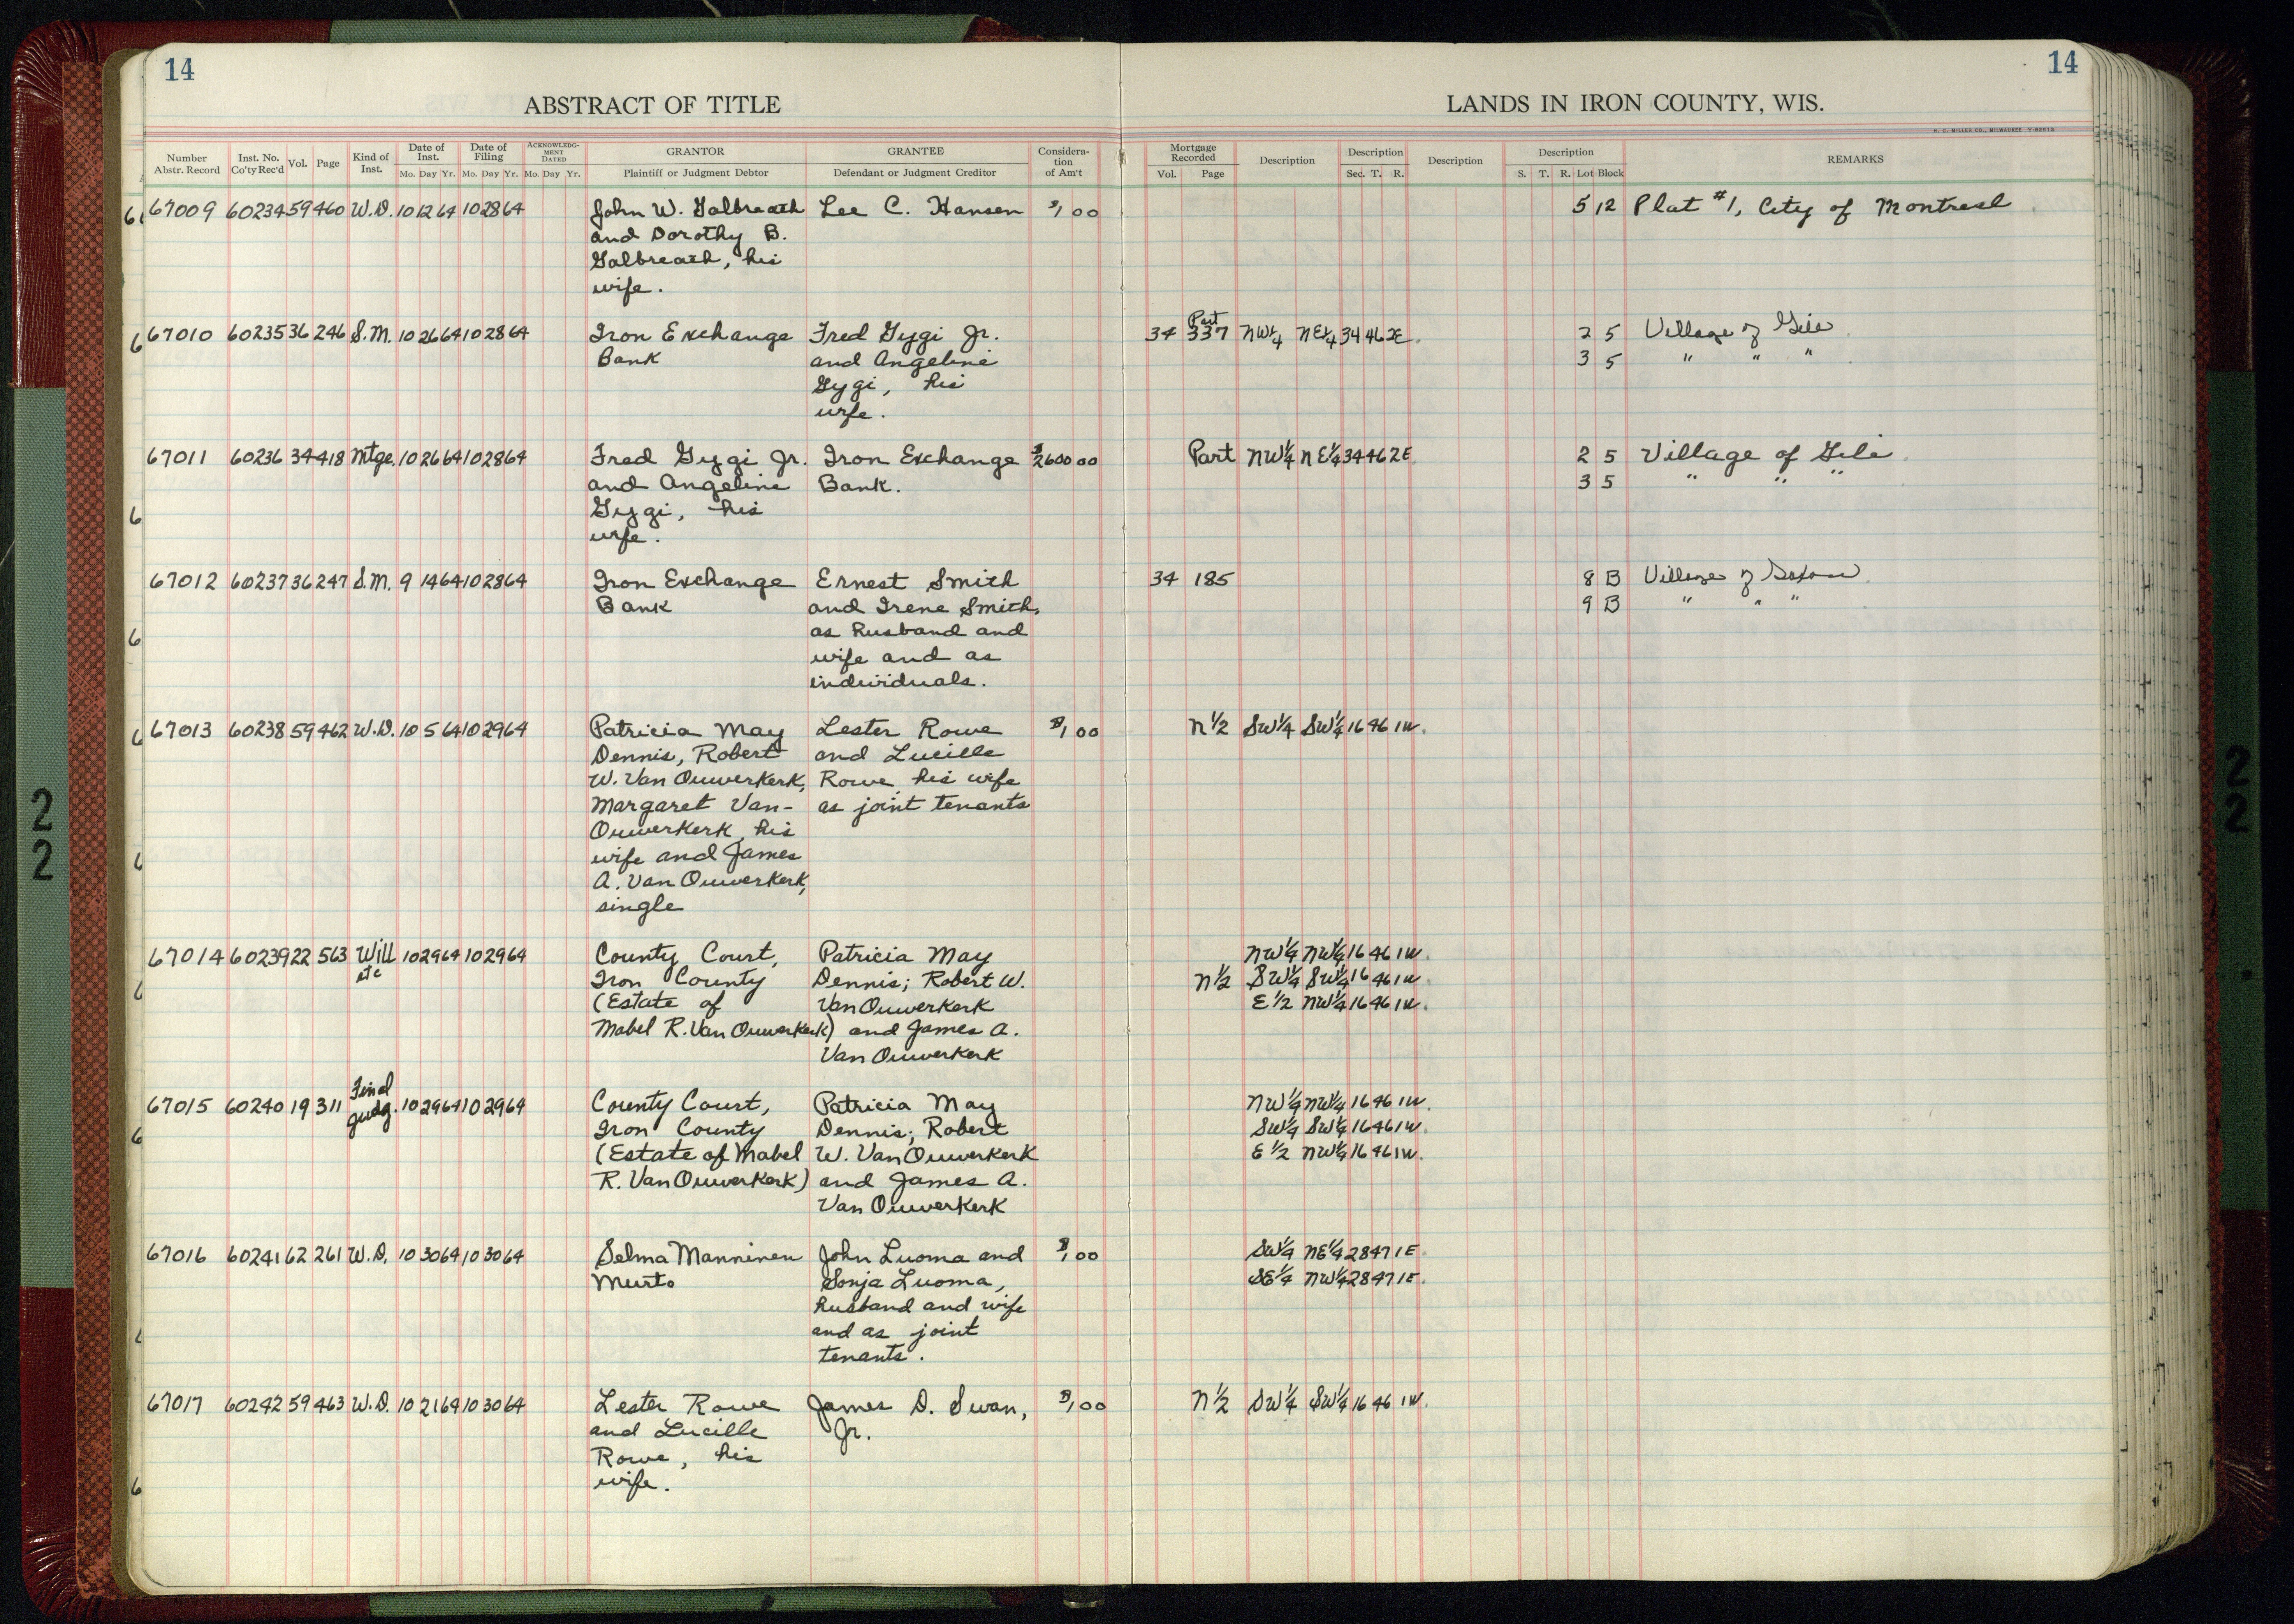 14
14
ABSTRACT OF TITLE
LANDS IN IRON COUNTY, WIS.
H. C. MILLER CO., MILWAUKEE
Number Abstr. Record Inst. No. Co'ty Rec'd Vol. Page Kind of Inst. Date of Inst. Mo. Day Yr. Date of Filing Mo. Day Yr. ACKNOWLEDGMENT DATED Mo. Day Yr. GRANTOR Plaintiff or Judgment Debtor GRANTEE Defendant or Judgment Creditor Consideration of Am't Mortgage Recorded Vol. Page Description Description Sec. T. R. Description Description S. T. R. Lot Block REMARKS
67009 60234 59 460 W.D. 10 12 64 10 28 64 John W. Galbreath Lee C. Hansen $1 00 5 12 Plat #1, City of Montreal
and Dorothy B.
Galbreath, his
wife.
67010 60235 36 246 S.M. 10 26 64 10 28 64 Iron Exchange Fred Gygi Jr. 34 337 Part NW¼ NE¼ 34 46 2E. 2 5 Village of Gile
Bank and Angeline 3 5 " " "
Gygi, his
wife.
67011 60236 34 418 Mtge. 10 26 64 10 28 64 Fred Gygi Jr. Iron Exchange $2600 00 Part NW¼ NE¼ 34 46 2E. 2 5 Village of Gile
and Angeline Bank. 3 5 " " "
Gygi, his
wife.
67012 60237 36 247 S.M. 9 14 64 10 28 64 Iron Exchange Ernest Smith 34 185 8 B Village of Saxon
Bank and Irene Smith, 9 B " " "
as husband and
wife and as
individuals.
67013 60238 59 462 W.D. 10 5 64 10 29 64 Patricia May Lester Rowe $1 00 N½ SW¼ SW¼ 16 46 1W.
Dennis, Robert and Lucille
W. Van Ouwerkerk, Rowe, his wife
Margaret Van- as joint tenants
Ouwerkerk, his
wife and James
A. Van Ouwerkerk,
single
67014 60239 22 563 Will etc 10 29 64 10 29 64 County Court, Patricia May NW¼ NW¼ 16 46 1W.
Iron County Dennis; Robert W. N½ SW¼ SW¼ 16 46 1W.
(Estate of Van Ouwerkerk E½ NW¼ 16 46 1W.
Mabel R. Van Ouwerkerk) and James A.
Van Ouwerkerk
67015 60240 19 311 Final Judg. 10 29 64 10 29 64 County Court, Patricia May NW¼ NW¼ 16 46 1W.
Iron County Dennis; Robert SW¼ SW¼ 16 46 1W.
(Estate of Mabel W. Van Ouwerkerk E½ NW¼ 16 46 1W.
R. Van Ouwerkerk) and James A.
Van Ouwerkerk
67016 60241 62 261 W.D. 10 30 64 10 30 64 Selma Manninen John Luoma and $1 00 SW¼ NE¼ 28 47 1E.
Murto Sonja Luoma, SE¼ NW¼ 28 47 1E.
husband and wife
and as joint
tenants.
67017 60242 59 463 W.D. 10 21 64 10 30 64 Lester Rowe James D. Swan, $1 00 N½ SW¼ SW¼ 16 46 1W.
and Lucille Jr.
Rowe, his
wife.
22
22